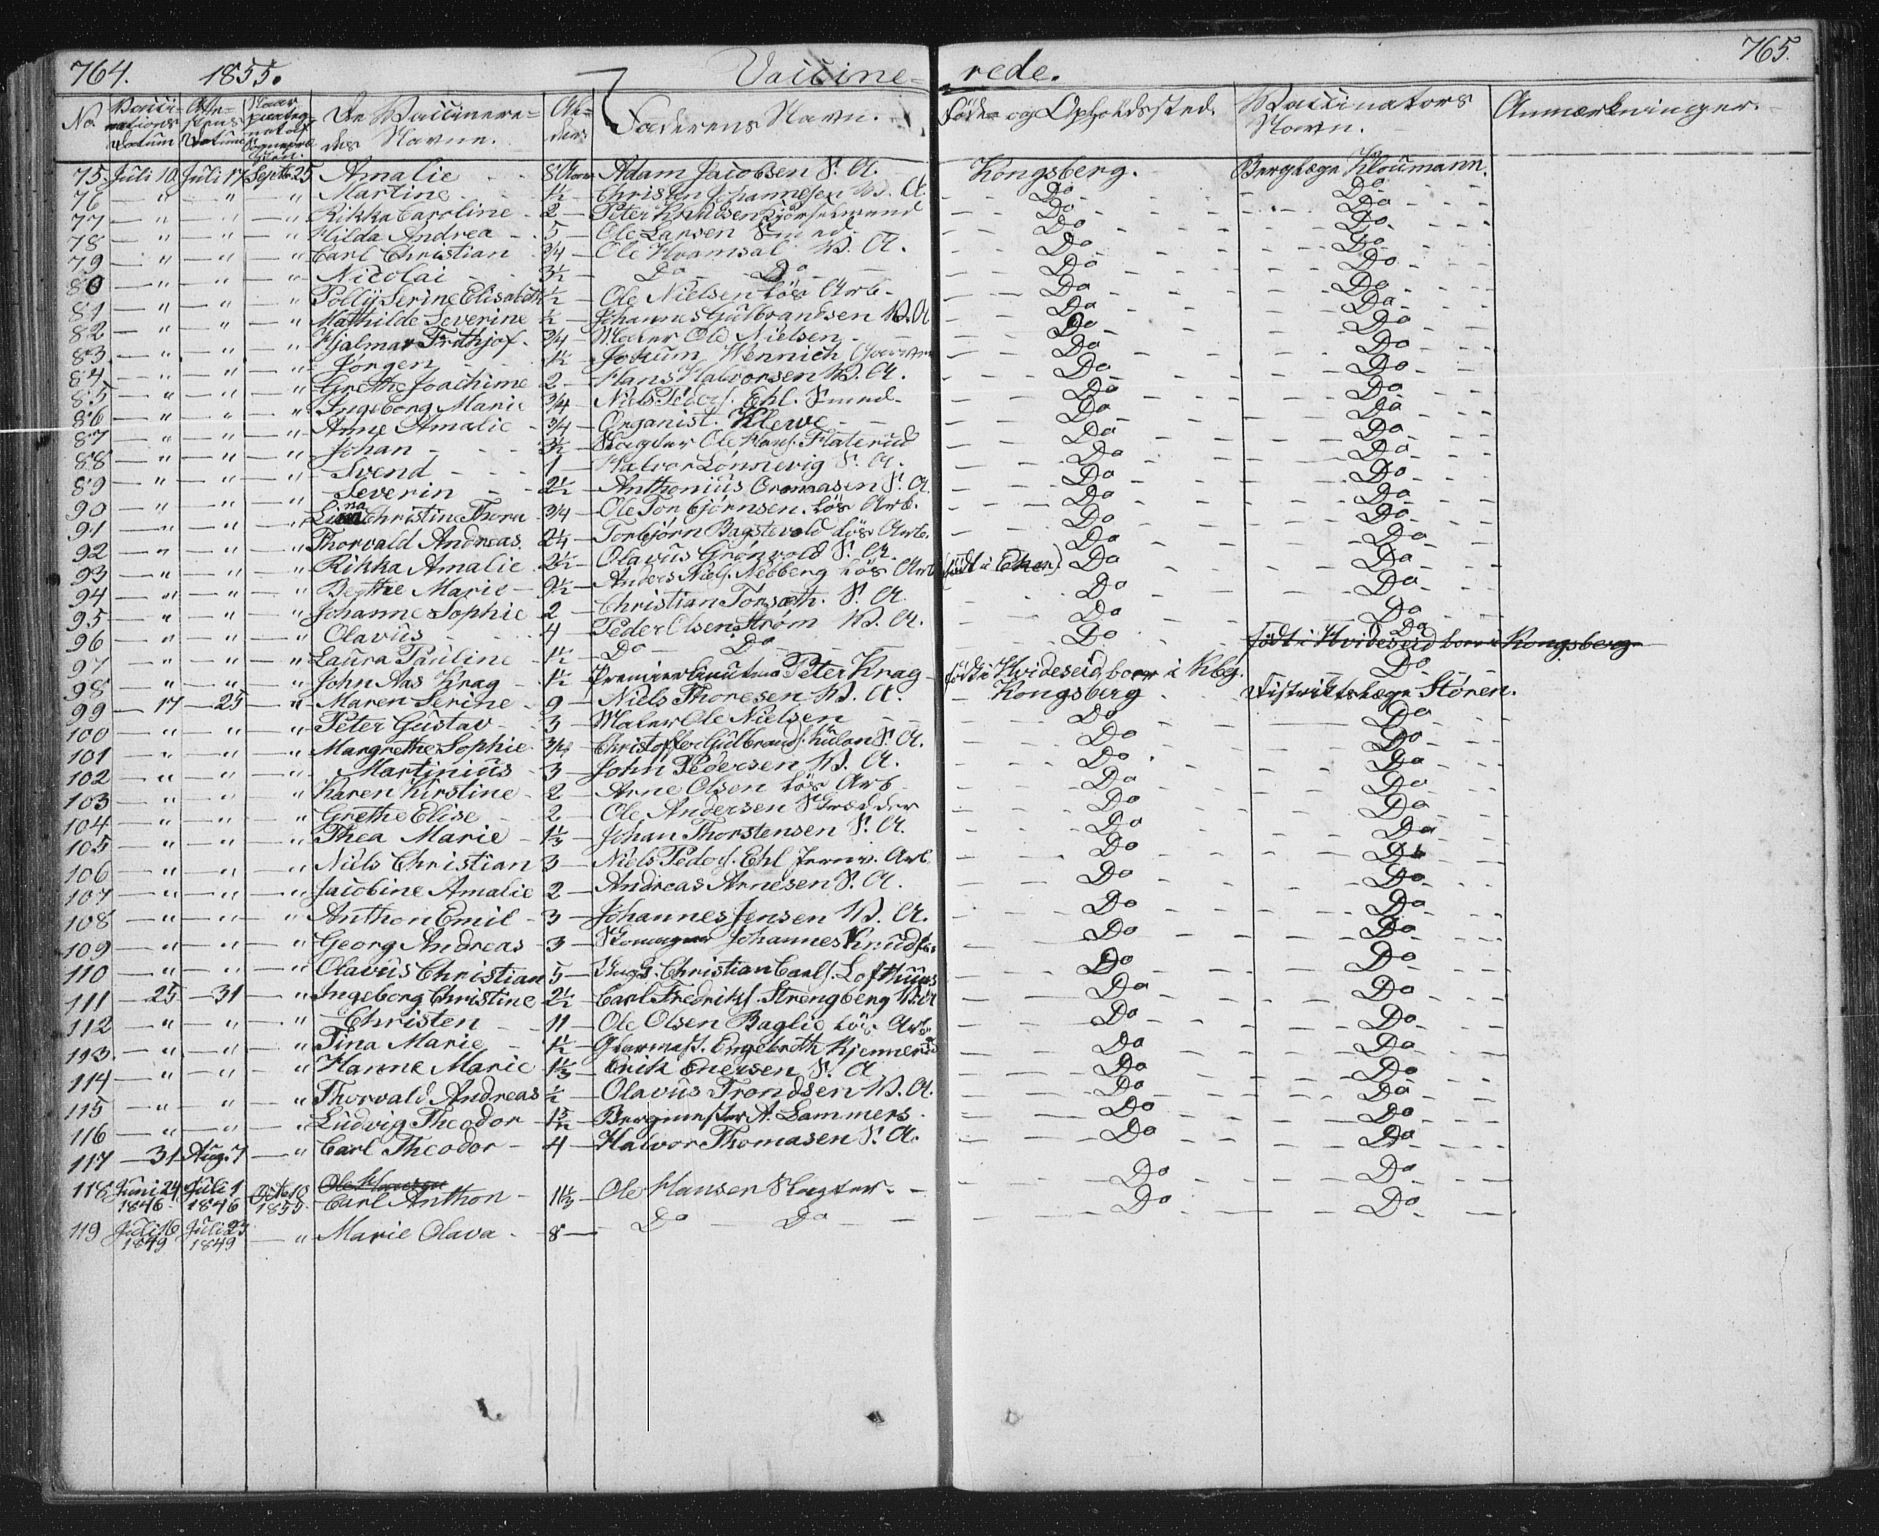 764. 1855. Vaccine- rede. 765.
No Vacci- nations Datum Efter- synets Datum Naar De Vaccinere- des Navne. Al- der Faderens Navn. Føde og Opholdssted. Vaccinators Navn. Anmærkninger.
75 Juli 10 Juli 17 Septb 25 Amalie 8 Adam Jacobsen S. A. Kongsberg. Berglæge Kloumann.
76 — " — " — " Martine 1½ — Christen Johannesen A. Do Do
77 — " — " — " Rikka Caroline 2 — Peter Knudsen Kjørselmand Do Do
78 — " — " — " Hilda Andrea 5 — Ole Larsen Smed Do Do
79 — " — " — " Carl Christian ¾ — Ole Hramsal W. A. Do Do
80 — " — " — " Nicolai 3½ — Do Do Do Do
81 — " — " — " Polly Serine Elisabeth ½ — Ole Nielsen løs Arb. Do Do
82 — " — " — " Mathilde Severine ½ — Johannes Gulbrandsen W. A Do Do
83 — " — " — " Hjalmar Frithjof ¾ — Maler Ole Nielsen Do Do
84 — " — " — " Jørgen 1½ — Jokum Wennich Do Do
85 — " — " — " Grethe Joachime 2 — Hans Halvorsen W. A. Do Do
86 — " — " — " Ingeborg Marie ¾ — Niels Peders. Ehl. Smed Do Do
87 — " — " — " Anne Amalie ¾ — Organist Klewe Do Do
88 — " — " — " Johan 3½ — Slagter Ole Hans. Flaterud Do Do
89 — " — " — " Svend 1 — Halvor Lønnevig S. A. Do Do
90 — " — " — " Severin 2½ — Anthonius S. A. Do Do
91 — " — " — " Christine Thora ¾ — Ole Torbjørnsen løs Arb. Do Do
92 — " — " — " Thorvald Andreas 2¼ — Torbjørn løs Arb. Do Do
93 — " — " — " Rikka Amalie 2½ — Olavus Grønvold S. A. Do Do
94 — " — " — " Berthe Marie 9½ — Anders Niels. Nedberg løs Arb (født i Eker) Do Do
95 — " — " — " Johanne Sophie 2 — Christian Torsæth. S. A. Do Do
96 — " — " — " Olavus 4 — Peder Olsen Strøm W. A. Do Do
97 — " — " — " Laura Pauline 1½ — Do Do Do Do født i Hvideseid boer i Kongsberg
98 — " — " — " John Aas Krag 1½ — Premierlieutenant Peter Krag født i Hvideseid, boer i Kbg. Do
99 — 17 — 25 — " Maren Serine 9 — Niels Thoresen W. A. Kongsberg Distriktslæge Støren.
100 — " — " — " Peter Gustav 3 — Maler Ole Nielsen Do Do
101 — " — " — " Margrethe Sophie Christoffer Gulbrands. S. A. Do Do
102 — " — " — " Martinius 3 — John Pedersen W. A. Do Do
103 — " — " — " Karen Kirstine 2 — Arne Olsen løs Arb Do Do
104 — " — " — " Grethe Elise 2 — Ole Andersen Skrædder Do Do
105 — " — " — " Thea Marie 1⅓ — Johan Thorstensen S. A. Do Do
106 — " — " — " Niels Christian 3 — Niels Peders. Ehl Jernv. Arb. Do Do
107 — " — " — " Jacobine Amalie 2 — Andreas Arnesen S. A. Do Do
108 — " — " — " Anthon Emil 3 — Johannes Jensen W. A. Do Do
109 — " — " — " Georg Andreas 3 — Skomager Johannes Knuds. Do Do
110 — " — " — " Olavus Christian 5 — Christian Carls. Lofthuus Do Do
111 — 25 — 31 — " Ingeborg Christine 2½ — Carl Fredriks. Strengberg W. A Do Do
112 — " — " — " Christen 11 — Ole Olsen Baglie løs Arb Do Do
113. — " — " — " Tina Marie 1½ — Glarmest. Engebreth Kjennerud Do Do
114 — " — " — " Hanne Marie 1⅓ — Erik Enersen S. A Do Do
115 — " — " — " Thorvald Andreas ½ — Olavus Trondsen W. A. Do Do
116 — " — " — " Ludvig Theodor Bergmester A. Lammers Do Do
117 — 31 Aug. 7 — " Carl Theodor 4 — Halvor Thomasen S. A. Do Do
118 Juni 24 1846 Juli 1 1846 Octb 10 1855 Ole Hansen Carl Anthon 11⅓ — Ole Hansen Slagter Do Do
119 Juli 16 1849 Juli 23 1849 — " Marie Olava 8 — Do — Do Do Do